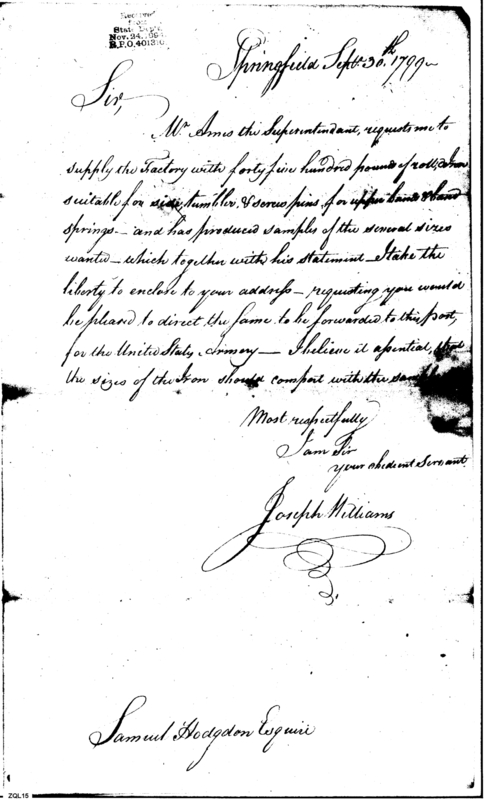 Received
from
State Dep't.
Nov. 24, 1894
R.P.O. 401310.
Springfield Sept. 30th. 1799
Sir,
Mr. Ames the Superintendant, requests me to
supply the Factory with forty five hundred pounds of roll'd Iron
suitable for side, tumbler, & screw pins, for upper bands & band
springs – and has produced samples of the several sizes
wanted – which together with his statement – I take the
liberty to enclose to your address – requesting you would
be pleased to direct the same to be forwarded to this post,
for the United States Armory – I believe it essential, that
the sizes of the Iron should comport with the
Most respectfully
I am Sir
your obedient Servant
Joseph Williams
Samuel Hodgdon Esquire
ZQL15